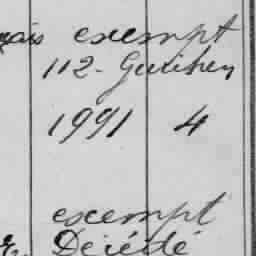 mais exempt
112- Guichen
1991 4
exempt
E. Décédé